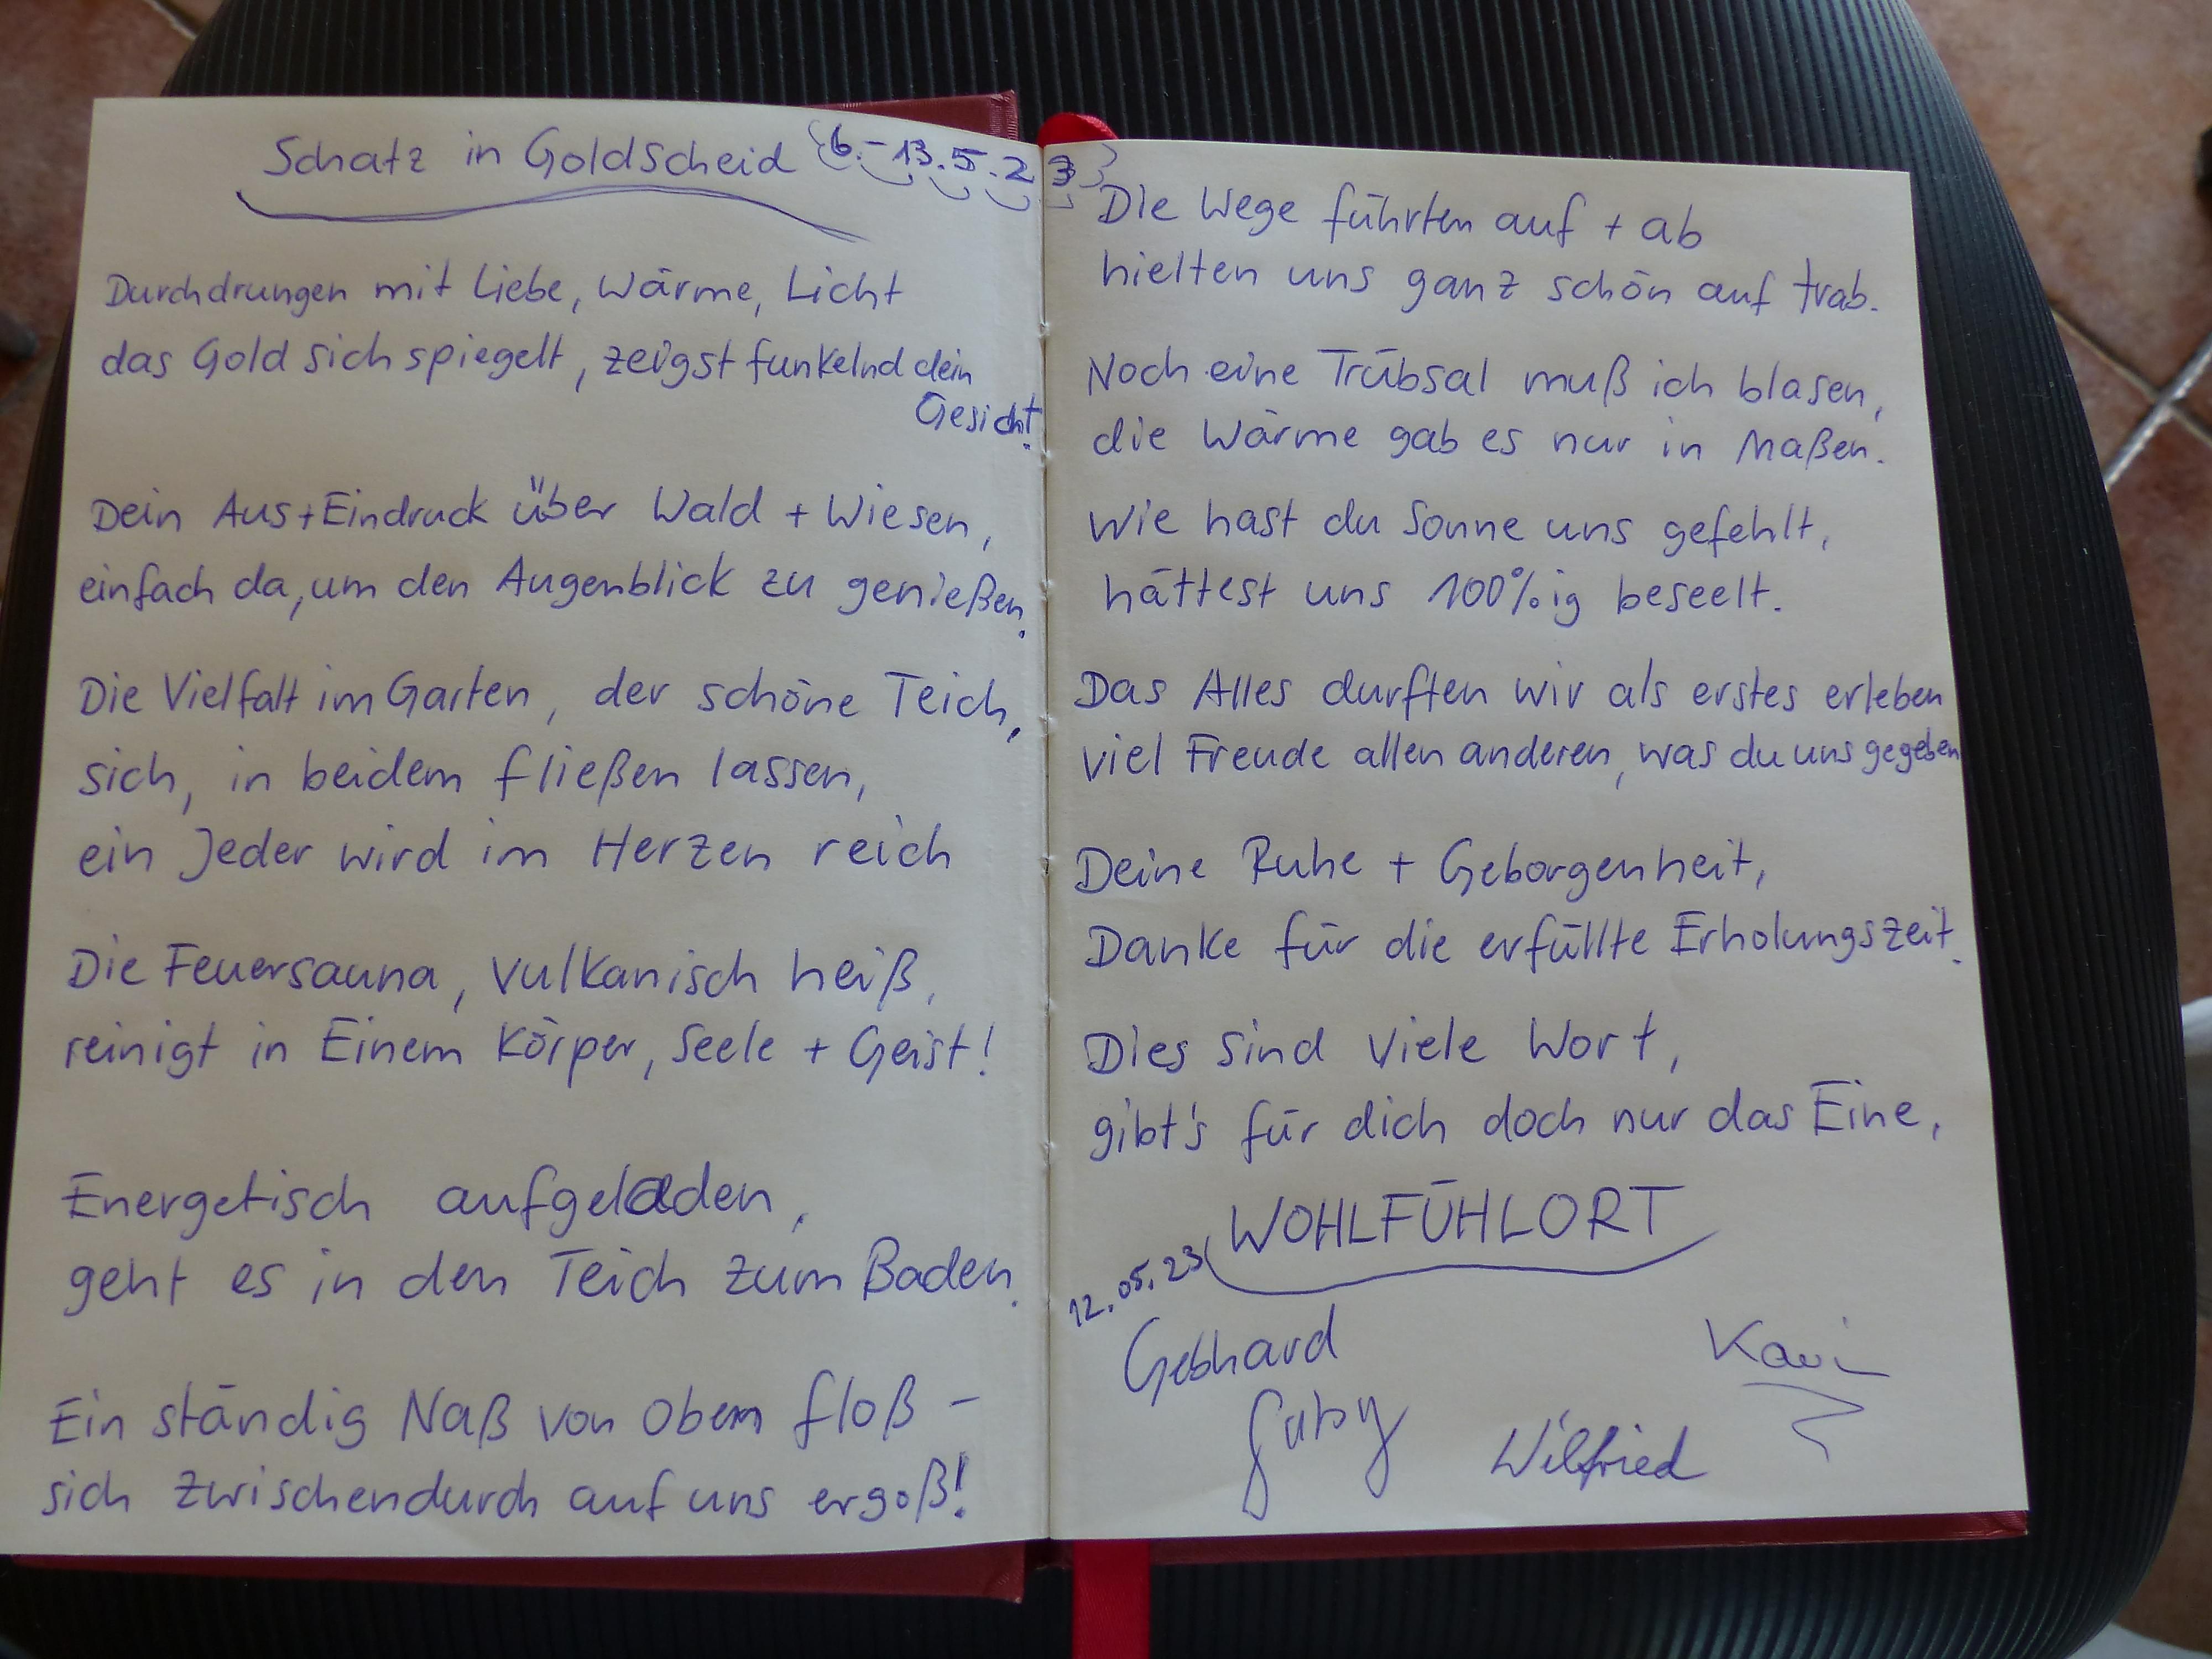 Schatz in Goldscheid (6.-13.5.23)
Durchdrungen mit Liebe, Wärme, Licht
das Gold sich spiegelt, zeigst funkelnd dein
Gesicht.
Dein Aus+Eindruck über Wald + Wiesen,
einfach da, um den Augenblick zu genießen.
Die Vielfalt im Garten, der schöne Teich,
sich, in beidem fließen lassen,
ein Jeder wird im Herzen reich
Die Feuersauna, vulkanisch heiß,
reinigt in Einem Körper, Seele + Geist!
Energetisch aufgeladen,
geht es in den Teich zum Baden.
Ein ständig Naß von Oben floß -
sich zwischendurch auf uns ergoß!
Die Wege führten auf + ab
hielten uns ganz schön auf trab.
Noch eine Trübsal muß ich blasen,
die Wärme gab es nur in Maßen.
Wie hast du Sonne uns gefehlt,
hättest uns 100%ig beseelt.
Das Alles durften wir als erstes erleben
viel Freude allen anderen, was du uns gegeben
Deine Ruhe + Geborgenheit,
Danke für die erfüllte Erholungszeit.
Dies sind viele Wort,
gibt's für dich doch nur das Eine,
WOHLFÜHLORT
12.05.23
Gebhard
Gaby
Wilfried